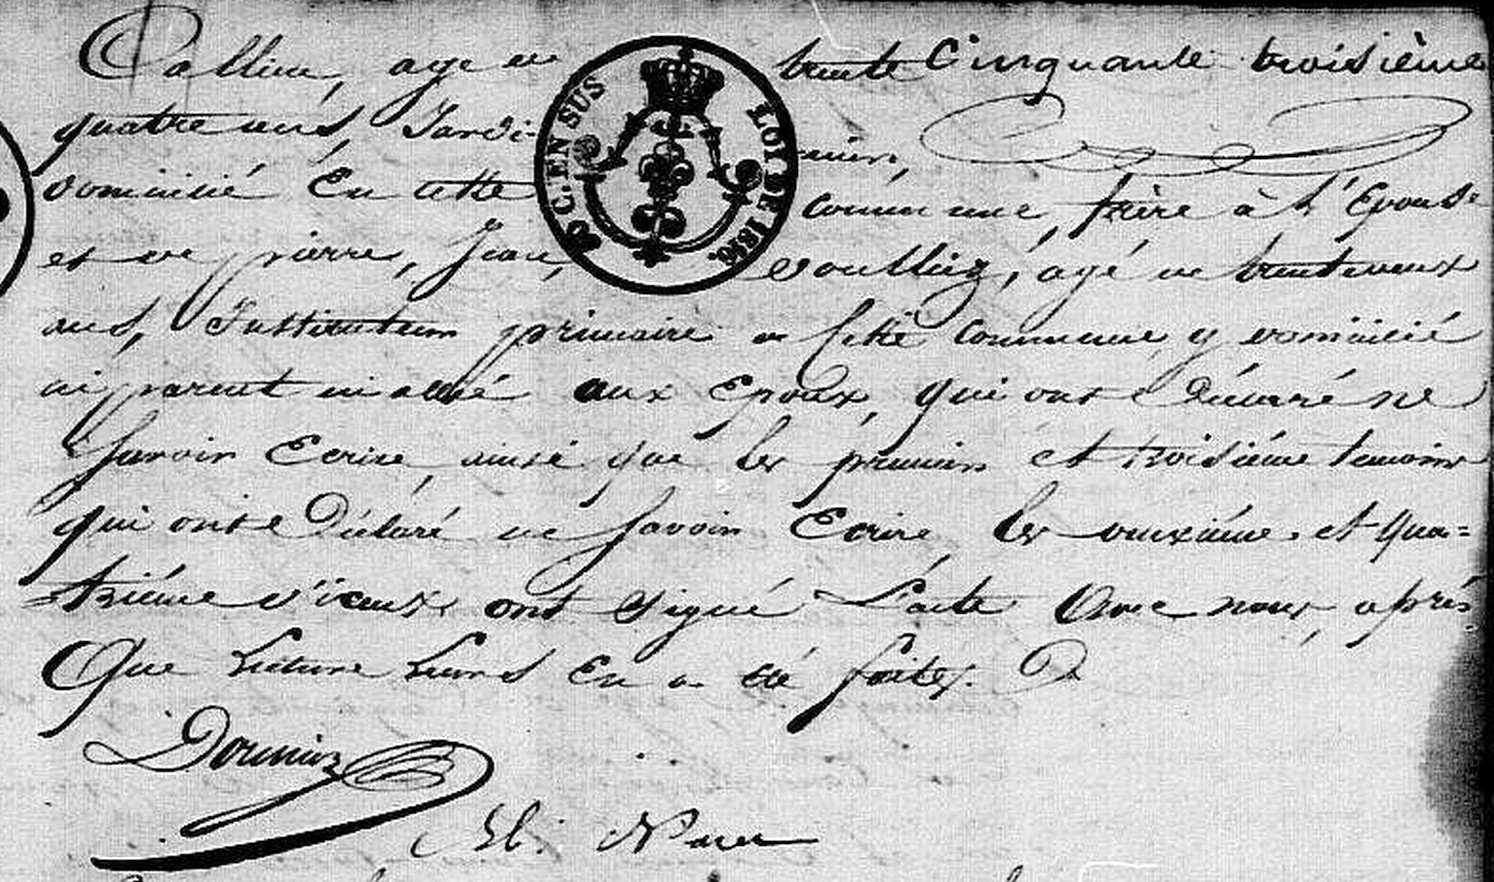 Calline, agé de trente Cinquante troisième
quatre ans, Jardi- nier,
domicilié En cette commune, frère à l'Epouse
et de pierre, Jean, agé de trente deux
ans, Instituteur primaire de Cette commune y domicilié
ni parent ni allié aux Epoux, qui ont Déclaré ne
Savoir Ecrire, ainsi que les premier et troisiéme temoins
qui ont Déclaré ne Savoir Ecrire, les deuxiéme et qua=
triéme d'iceux ont signé L'acte Avec nous, aprés
Que Lecture Leurs En a été faite.
50 C. EN SUS LOI DE 1816.